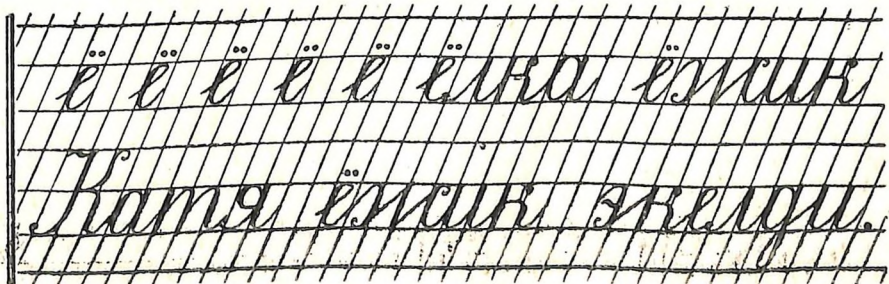 ё ё ё ё ё ёлка ёжик
Катя ёжик экелди.